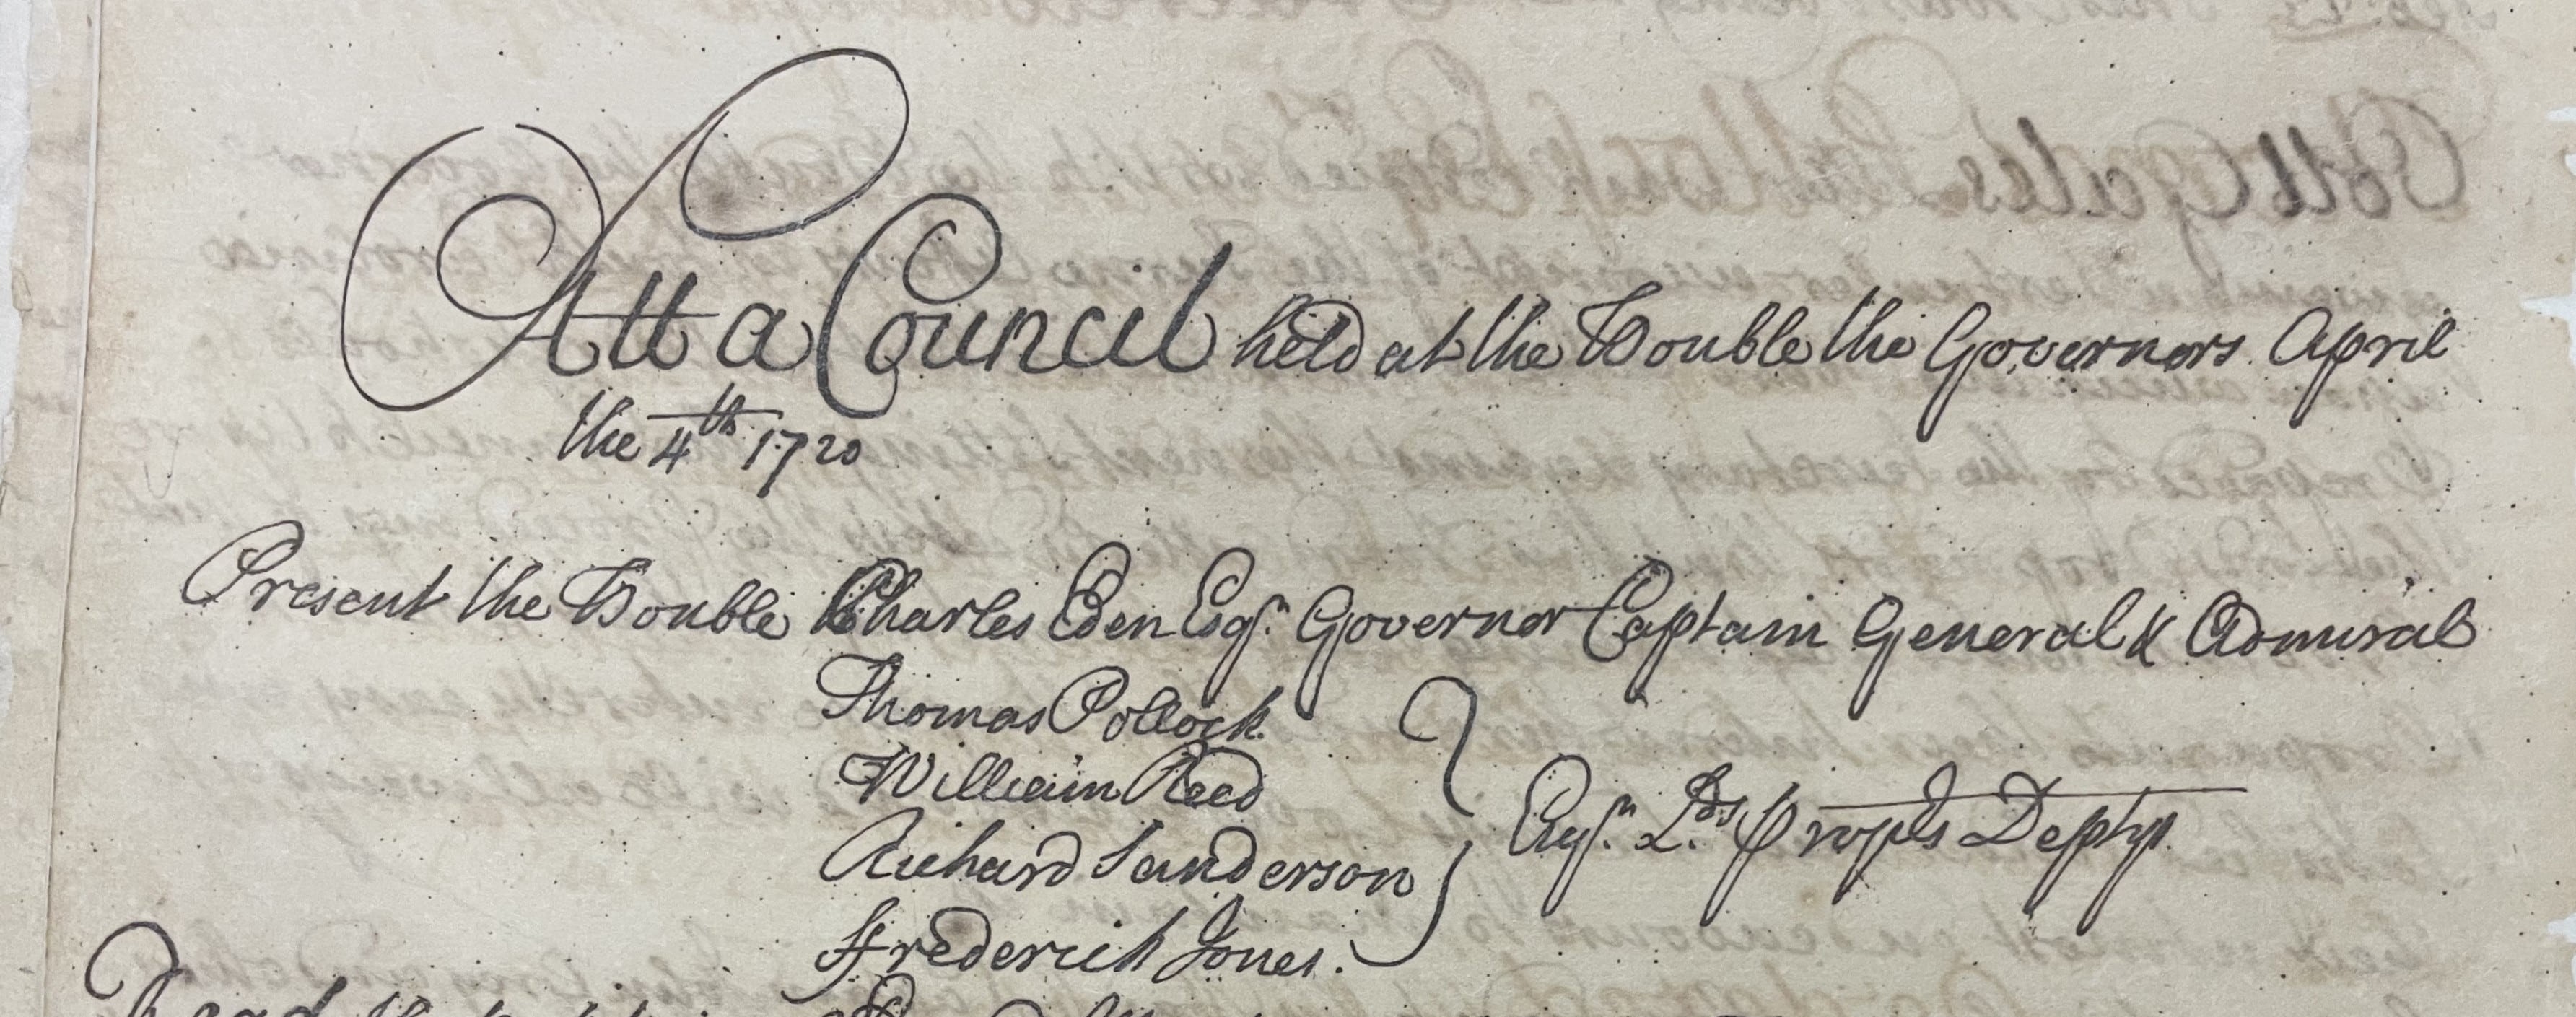 Att a Council held at the Honble the Governors April
the 4th 1720
Present the Honble Charles Eden Esqr. Governor Captain General & Admiral
Thomas Pollock
William Reed
Richard Sanderson
Frederick Jones.
Esqrs. Lds proprs Deptys.
Read the